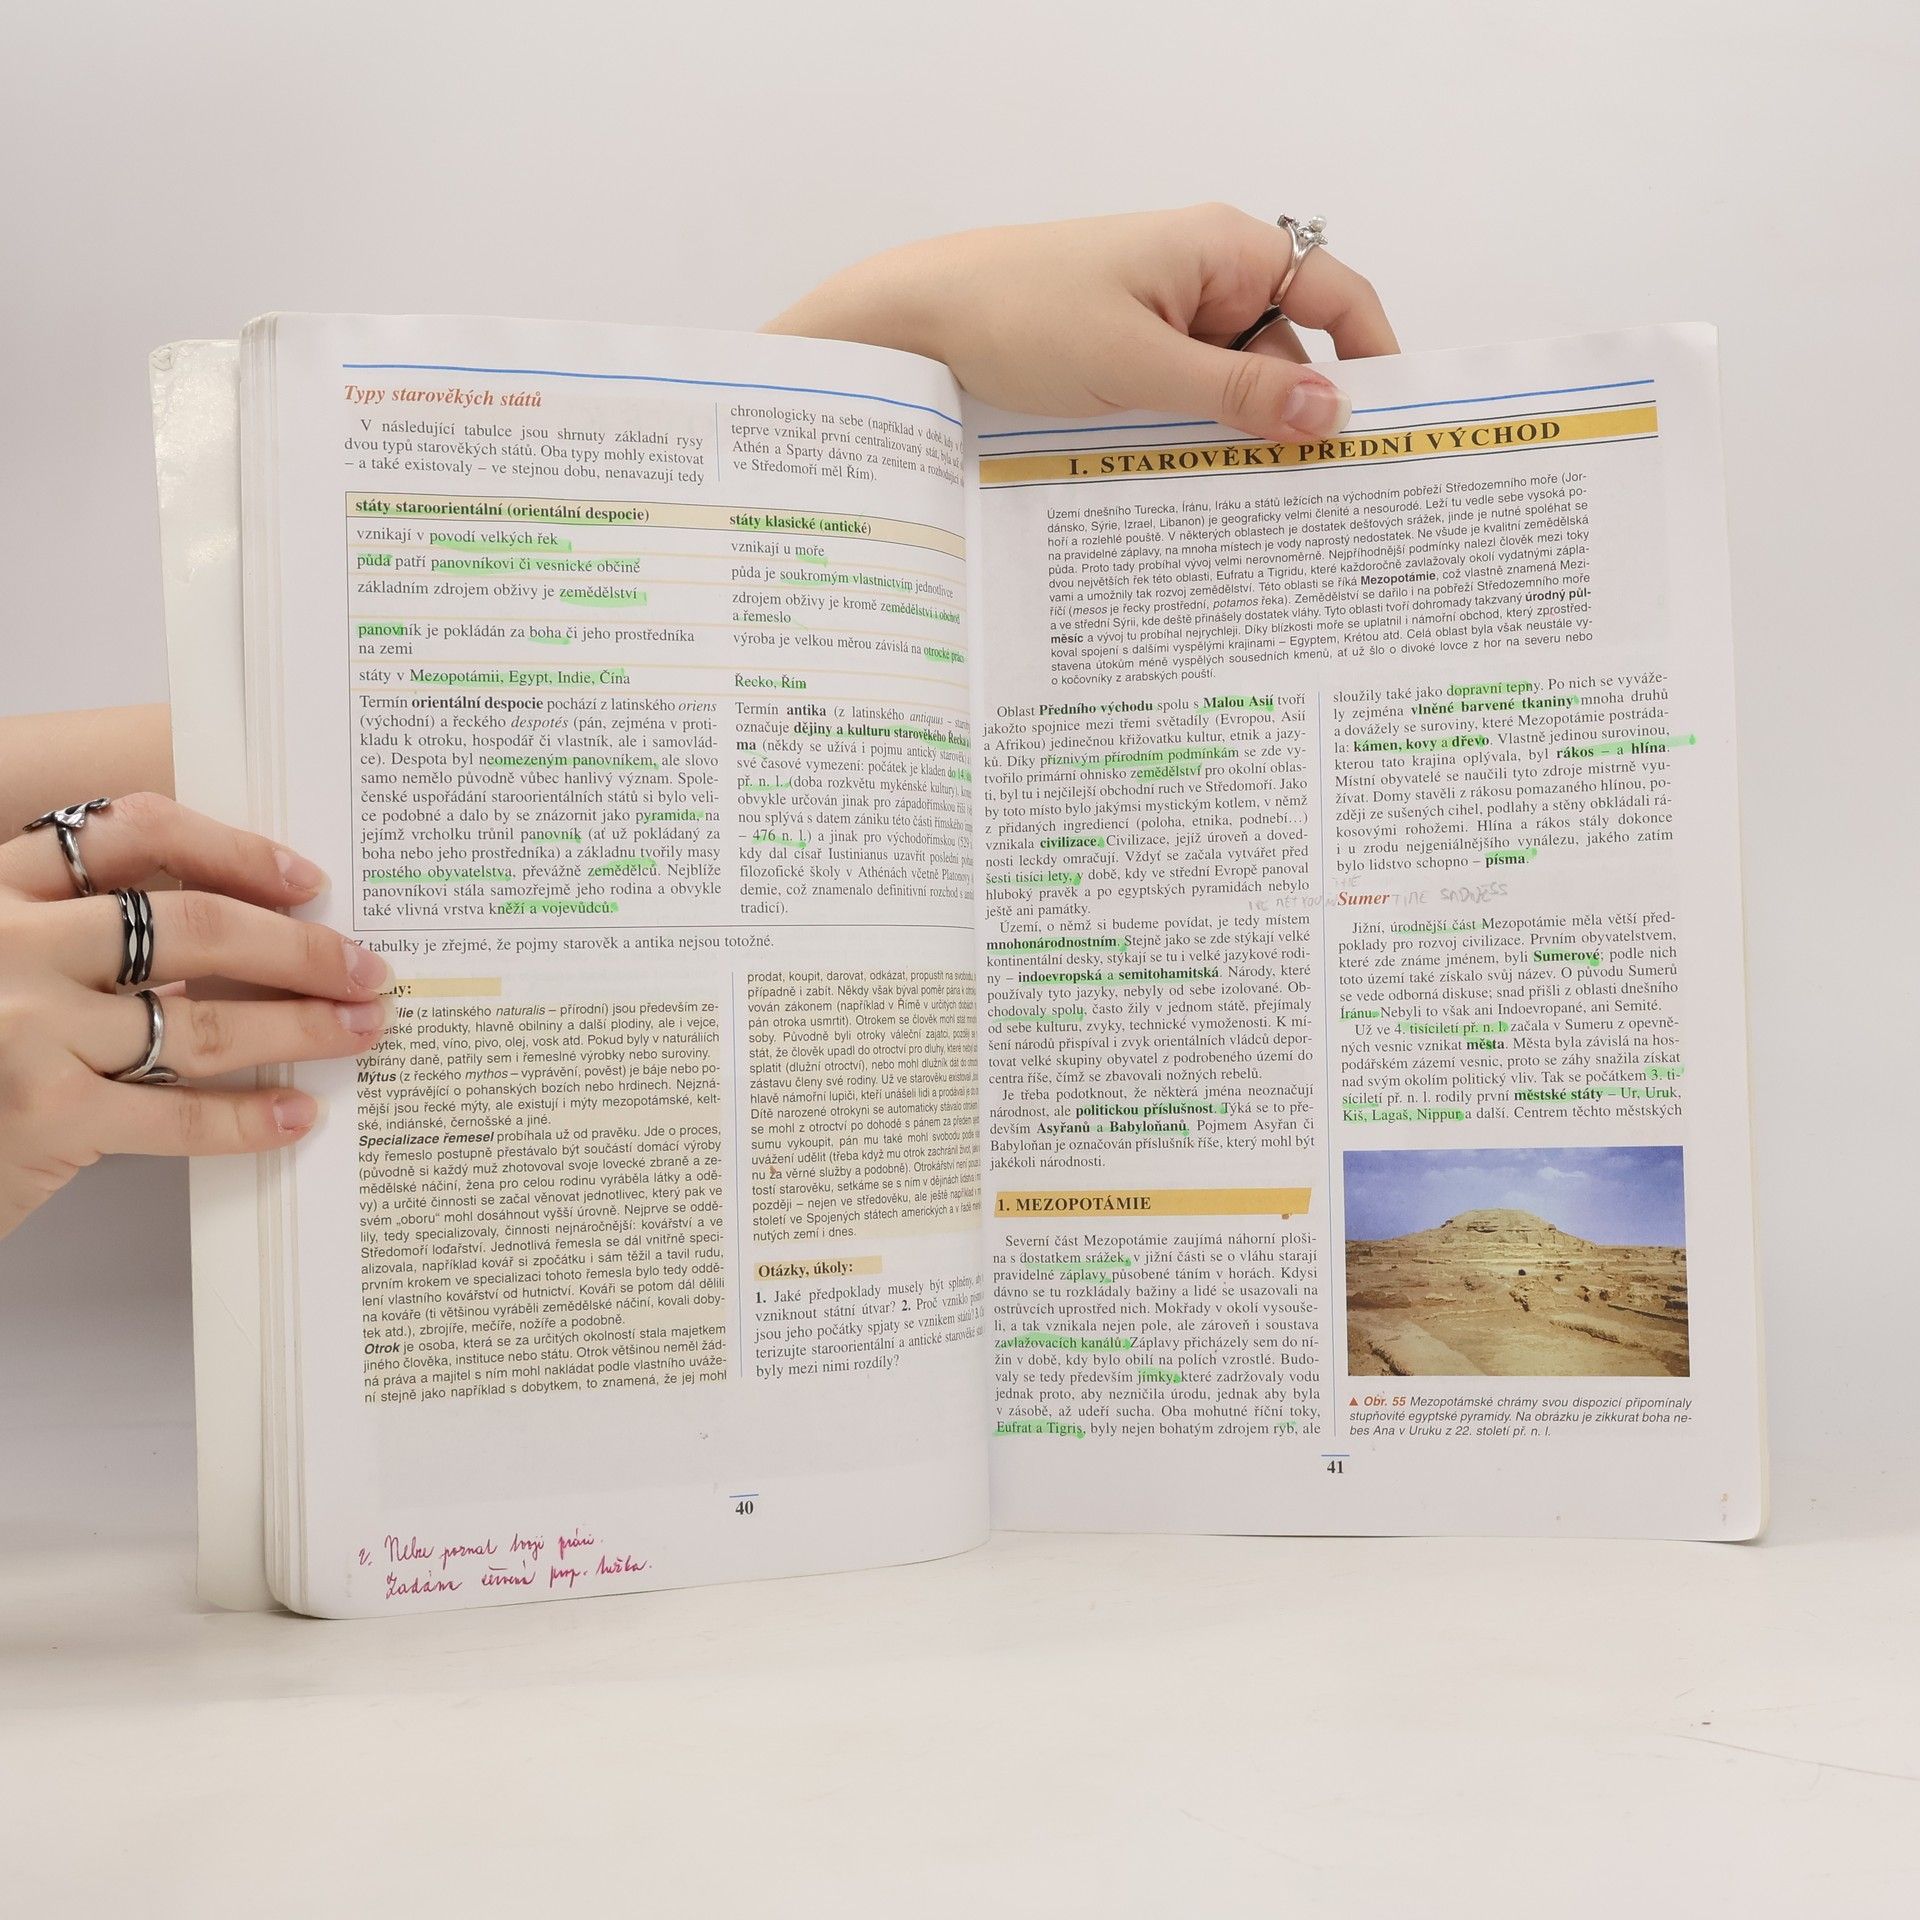 Typy starověkých států
V následující tabulce jsou shrnuty základní rysy
dvou typů starověkých států. Oba typy mohly existovat
– a také existovaly – ve stejnou dobu, nenavazují tedy
chronologicky na sebe (například v době, kdy v
teprve vznikal první centralizovaný stát, byla už
Athén a Sparty dávno za zenitem a rozhodující
ve Středomoří měl Řím).
státy staroorientální (orientální despocie)
státy klasické (antické)
vznikají v povodí velkých řek
vznikají u moře
půda patří panovníkovi či vesnické občině
půda je soukromým vlastnictvím jednotlivce
základním zdrojem obživy je zemědělství
zdrojem obživy je kromě zemědělství i obchod
a řemeslo
panovník je pokládán za boha či jeho prostředníka
na zemi
výroba je velkou měrou závislá na otrocké práci
státy v Mezopotámii, Egypt, Indie, Čína
Řecko, Řím
Termín orientální despocie pochází z latinského oriens
(východní) a řeckého despotés (pán, zejména v proti-
kladu k otroku, hospodář či vlastník, ale i samovlád-
ce). Despota byl neomezeným panovníkem, ale slovo
samo nemělo původně vůbec hanlivý význam. Spole-
čenské uspořádání staroorientálních států si bylo veli-
ce podobné a dalo by se znázornit jako pyramida, na
jejímž vrcholku trůnil panovník (ať už pokládaný za
boha nebo jeho prostředníka) a základnu tvořily masy
prostého obyvatelstva, převážně zemědělců. Nejblíže
panovníkovi stála samozřejmě jeho rodina a obvykle
také vlivná vrstva kněží a vojevůdců.
Termín antika (z latinského antiquus –
označuje dějiny a kulturu starověkého Řecka a
ma (někdy se užívá i pojmu antický starověk)
své časové vymezení: počátek je kladen do 14.
př. n. l. (doba rozkvětu mykénské kultury),
obvykle určován jinak pro západořímskou říši
nou splývá s datem zániku této části římského
– 476 n. l.) a jinak pro východořímskou (529
kdy dal císař Iustinianus uzavřít poslední
filozofické školy v Athénách včetně Platonovy
demie, což znamenalo definitivní rozchod s
tradicí).
Z tabulky je zřejmé, že pojmy starověk a antika nejsou totožné.
(z latinského naturalis – přírodní) jsou především ze-
produkty, hlavně obilniny a další plodiny, ale i vejce,
med, víno, pivo, olej, vosk atd. Pokud byly v naturáliích
vybírány daně, patřily sem i řemeslné výrobky nebo suroviny.
Mýtus (z řeckého mythos – vyprávění, pověst) je báje nebo po-
věst vyprávějící o pohanských bozích nebo hrdinech. Nejzná-
mější jsou řecké mýty, ale existují i mýty mezopotámské, kelt-
ské, indiánské, černošské a jiné.
Specializace řemesel probíhala už od pravěku. Jde o proces,
kdy řemeslo postupně přestávalo být součástí domácí výroby
(původně si každý muž zhotovoval svoje lovecké zbraně a ze-
mědělské náčiní, žena pro celou rodinu vyráběla látky a odě-
vy) a určité činnosti se začal věnovat jednotlivec, který pak ve
svém „oboru“ mohl dosáhnout vyšší úrovně. Nejprve se oddě-
lily, tedy specializovaly, činnosti nejnáročnější: kovářství a ve
Středomoří loďařství. Jednotlivá řemesla se dál vnitřně speci-
alizovala, například kovář si zpočátku i sám těžil a tavil rudu,
prvním krokem ve specializaci tohoto řemesla bylo tedy oddě-
lení vlastního kovářství od hutnictví. Kováři se potom dál dělili
na kováře (ti většinou vyráběli zemědělské náčiní, kovali doby-
tek atd.), zbrojíře, mečíře, nožíře a podobně.
Otrok je osoba, která se za určitých okolností stala majetkem
jiného člověka, instituce nebo státu. Otrok většinou neměl žád-
ná práva a majitel s ním mohl nakládat podle vlastního uváže-
ní stejně jako například s dobytkem, to znamená, že jej mohl
prodat, koupit, darovat, odkázat, propustit na svobodu
případně i zabít. Někdy však býval poměr pána k
vován zákonem (například v Římě v určitých dobách
pán otroka usmrtit). Otrokem se člověk mohl stát
soby. Původně byli otroky váleční zajatci, později se
stát, že člověk upadl do otroctví pro dluhy, které nebyl
splatit (dlužní otroctví), nebo mohl dlužník dát do
zástavu členy své rodiny. Už ve starověku existovali
hlavě námořní lupiči, kteří unášeli lidi a prodávali je
Dítě narozené otrokyni se automaticky stávalo otrokem
se mohl z otroctví po dohodě s pánem za předem
sumu vykoupit, pán mu také mohl svobodu podle
uvážení udělit (třeba když mu otrok zachránil život,
nu za věrné služby a podobně). Otrokářství není
tostí starověku, setkáme se s ním v dějinách lidstva i
později – nejen ve středověku, ale ještě například v
století ve Spojených státech amerických a v řadě
nutých zemí i dnes.
Otázky, úkoly:
1. Jaké předpoklady musely být splněny,
vzniknout státní útvar? 2. Proč vzniklo
jsou jeho počátky spjaty se vznikem států? 3.
terizujte staroorientální a antické starověké
byly mezi nimi rozdíly?
40
2. Nelze poznat tvoji práci.
Žádáme červená prop. tužka.
I. STAROVĚKÝ PŘEDNÍ VÝCHOD
Území dnešního Turecka, Íránu, Iráku a států ležících na východním pobřeží Středozemního moře (Jor-
dánsko, Sýrie, Izrael, Libanon) je geograficky velmi členité a nesourodé. Leží tu vedle sebe vysoká po-
hoří a rozlehlé pouště. V některých oblastech je dostatek dešťových srážek, jinde je nutné spoléhat se
na pravidelné záplavy, na mnoha místech je vody naprostý nedostatek. Ne všude je kvalitní zemědělská
půda. Proto tady probíhal vývoj velmi nerovnoměrně. Nejpříhodnější podmínky nalezl člověk mezi toky
dvou největších řek této oblasti, Eufratu a Tigridu, které každoročně zavlažovaly okolí vydatnými zápla-
vami a umožnily tak rozvoj zemědělství. Této oblasti se říká Mezopotámie, což vlastně znamená Mezi-
říčí (mesos je řecky prostřední, potamos řeka). Zemědělství se dařilo i na pobřeží Středozemního moře
a ve střední Sýrii, kde deště přinášely dostatek vláhy. Tyto oblasti tvoří dohromady takzvaný úrodný půl-
měsíc a vývoj tu probíhal nejrychleji. Díky blízkosti moře se uplatnil i námořní obchod, který zprostřed-
koval spojení s dalšími vyspělými krajinami – Egyptem, Krétou atd. Celá oblast byla však neustále vy-
stavena útokům méně vyspělých sousedních kmenů, ať už šlo o divoké lovce z hor na severu nebo
o kočovníky z arabských pouští.
Oblast Předního východu spolu s Malou Asií tvoří
jakožto spojnice mezi třemi světadíly (Evropou, Asií
a Afrikou) jedinečnou křižovatku kultur, etnik a jazy-
ků. Díky příznivým přírodním podmínkám se zde vy-
tvořilo primární ohnisko zemědělství pro okolní oblas-
ti, byl tu i nejčilejší obchodní ruch ve Středomoří. Jako
by toto místo bylo jakýmsi mystickým kotlem, v němž
z přidaných ingrediencí (poloha, etnika, podnebí…)
vznikala civilizace. Civilizace, jejíž úroveň a doved-
nosti leckdy omračují. Vždyť se začala vytvářet před
šesti tisíci lety, v době, kdy ve střední Evropě panoval
hluboký pravěk a po egyptských pyramidách nebylo
ještě ani památky.
Území, o němž si budeme povídat, je tedy místem
mnohonárodnostním. Stejně jako se zde stýkají velké
kontinentální desky, stýkají se tu i velké jazykové rodi-
ny – indoevropská a semitohamitská. Národy, které
používaly tyto jazyky, nebyly od sebe izolované. Ob-
chodovaly spolu, často žily v jednom státě, přejímaly
od sebe kulturu, zvyky, technické vymoženosti. K mí-
šení národů přispíval i zvyk orientálních vládců depor-
tovat velké skupiny obyvatel z podrobeného území do
centra říše, čímž se zbavovali nožných rebelů.
Je třeba podotknout, že některá jména neoznačují
národnost, ale politickou příslušnost. Týká se to pře-
devším Asyřanů a Babyloňanů. Pojmem Asyřan či
Babyloňan je označován příslušník říše, který mohl být
jakékoli národnosti.
1. MEZOPOTÁMIE
Severní část Mezopotámie zaujímá náhorní ploši-
na s dostatkem srážek, v jižní části se o vláhu starají
pravidelné záplavy působené táním v horách. Kdysi
dávno se tu rozkládaly bažiny a lidé se usazovali na
ostrůvcích uprostřed nich. Mokřady v okolí vysouše-
li, a tak vznikala nejen pole, ale zároveň i soustava
zavlažovacích kanálů. Záplavy přicházely sem do ní-
žin v době, kdy bylo obilí na polích vzrostlé. Budo-
valy se tedy především jímky, které zadržovaly vodu
jednak proto, aby nezničila úrodu, jednak aby byla
v zásobě, až udeří sucha. Oba mohutné říční toky,
Eufrat a Tigris, byly nejen bohatým zdrojem ryb, ale
sloužily také jako dopravní tepny. Po nich se vyváže-
ly zejména vlněné barvené tkaniny mnoha druhů
a dovážely se suroviny, které Mezopotámie postráda-
la: kámen, kovy a dřevo. Vlastně jedinou surovinou,
kterou tato krajina oplývala, byl rákos – a hlína.
Místní obyvatelé se naučili tyto zdroje mistrně vyu-
žívat. Domy stavěli z rákosu pomazaného hlínou, po-
zději ze sušených cihel, podlahy a stěny obkládali rá-
kosovými rohožemi. Hlína a rákos stály dokonce
i u zrodu nejgeniálnějšího vynálezu, jakého zatím
bylo lidstvo schopno – písma.
Sumer TIME SADNESS
Jižní, úrodnější část Mezopotámie měla větší před-
poklady pro rozvoj civilizace. Prvním obyvatelstvem,
které zde známe jménem, byli Sumerové; podle nich
toto území také získalo svůj název. O původu Sumerů
se vede odborná diskuse; snad přišli z oblasti dnešního
Íránu. Nebyli to však ani Indoevropané, ani Semité.
Už ve 4. tisíciletí př. n. l. začala v Sumeru z opevně-
ných vesnic vznikat města. Města byla závislá na hos-
podářském zázemí vesnic, proto se záhy snažila získat
nad svým okolím politický vliv. Tak se počátkem 3. ti-
síciletí př. n. l. rodily první městské státy – Ur, Uruk,
Kiš, Lagaš, Nippur a další. Centrem těchto městských
▲ Obr. 55 Mezopotámské chrámy svou dispozicí připomínaly
stupňovité egyptské pyramidy. Na obrázku je zikkurat boha ne-
bes Ana v Uruku z 22. století př. n. l.
41